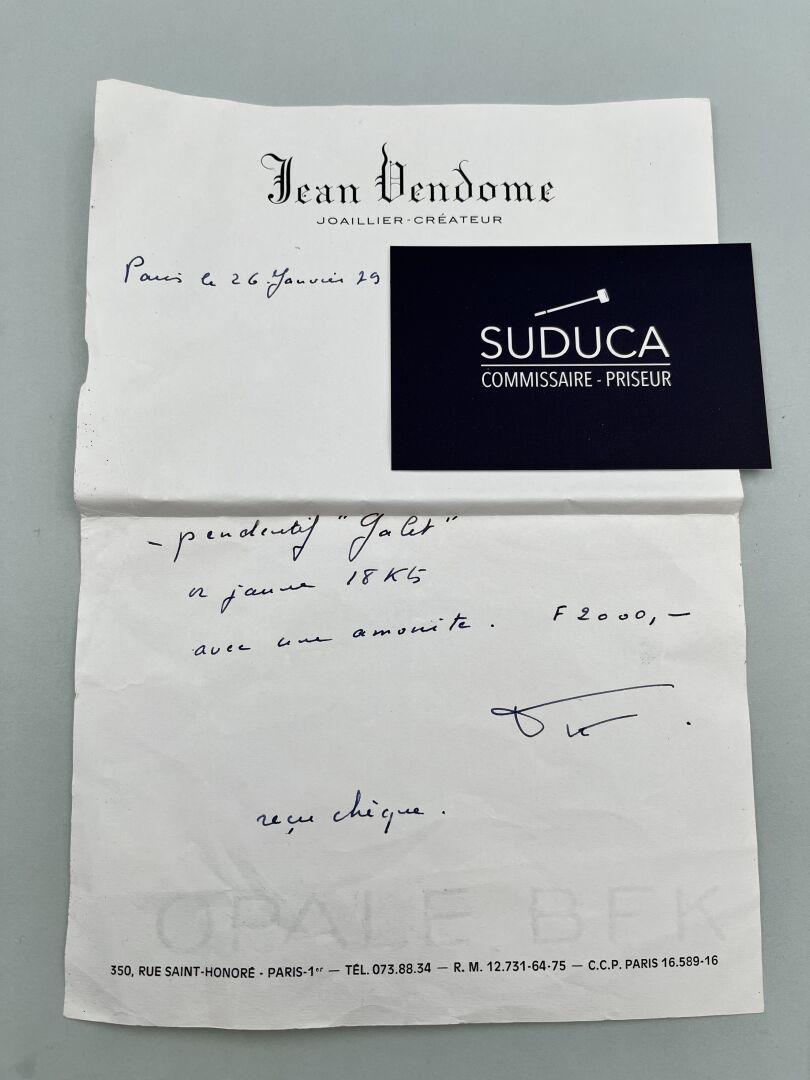 Jean Vendome
JOAILLIER-CRÉATEUR
Paris le 26 Janvier 79
SUDUCA
COMMISSAIRE - PRISEUR
- pendentif "Galet"
or jaune 18 Kts
avec une amonite. F 2000,-
reçu chèque.
OPALE BFK
350, RUE SAINT-HONORÉ - PARIS-1er — TÉL. 073.88.34 — R. M. 12.731-64-75 — C.C.P. PARIS 16.589-16